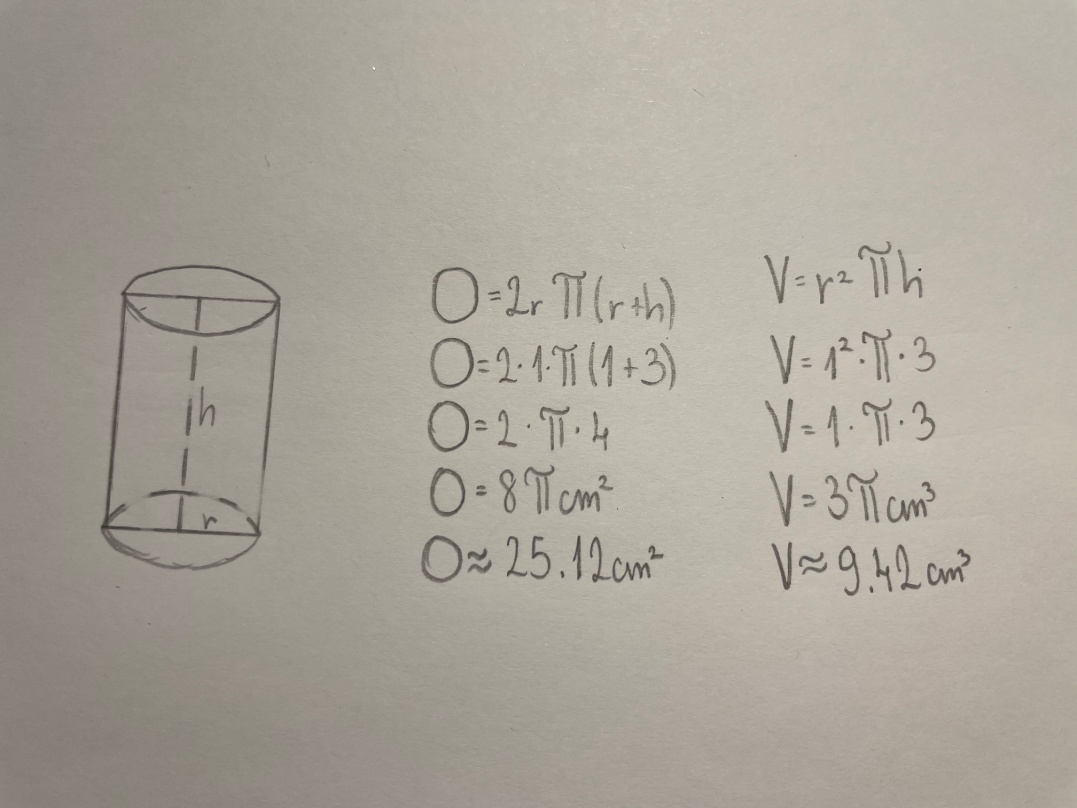 h
r
O=2rπ(r+h)
O=2·1·π(1+3)
O=2·π·4
O=8πcm²
O≈25.12cm²
V=r²πh
V=1²·π·3
V=1·π·3
V=3πcm³
V≈9.42cm³